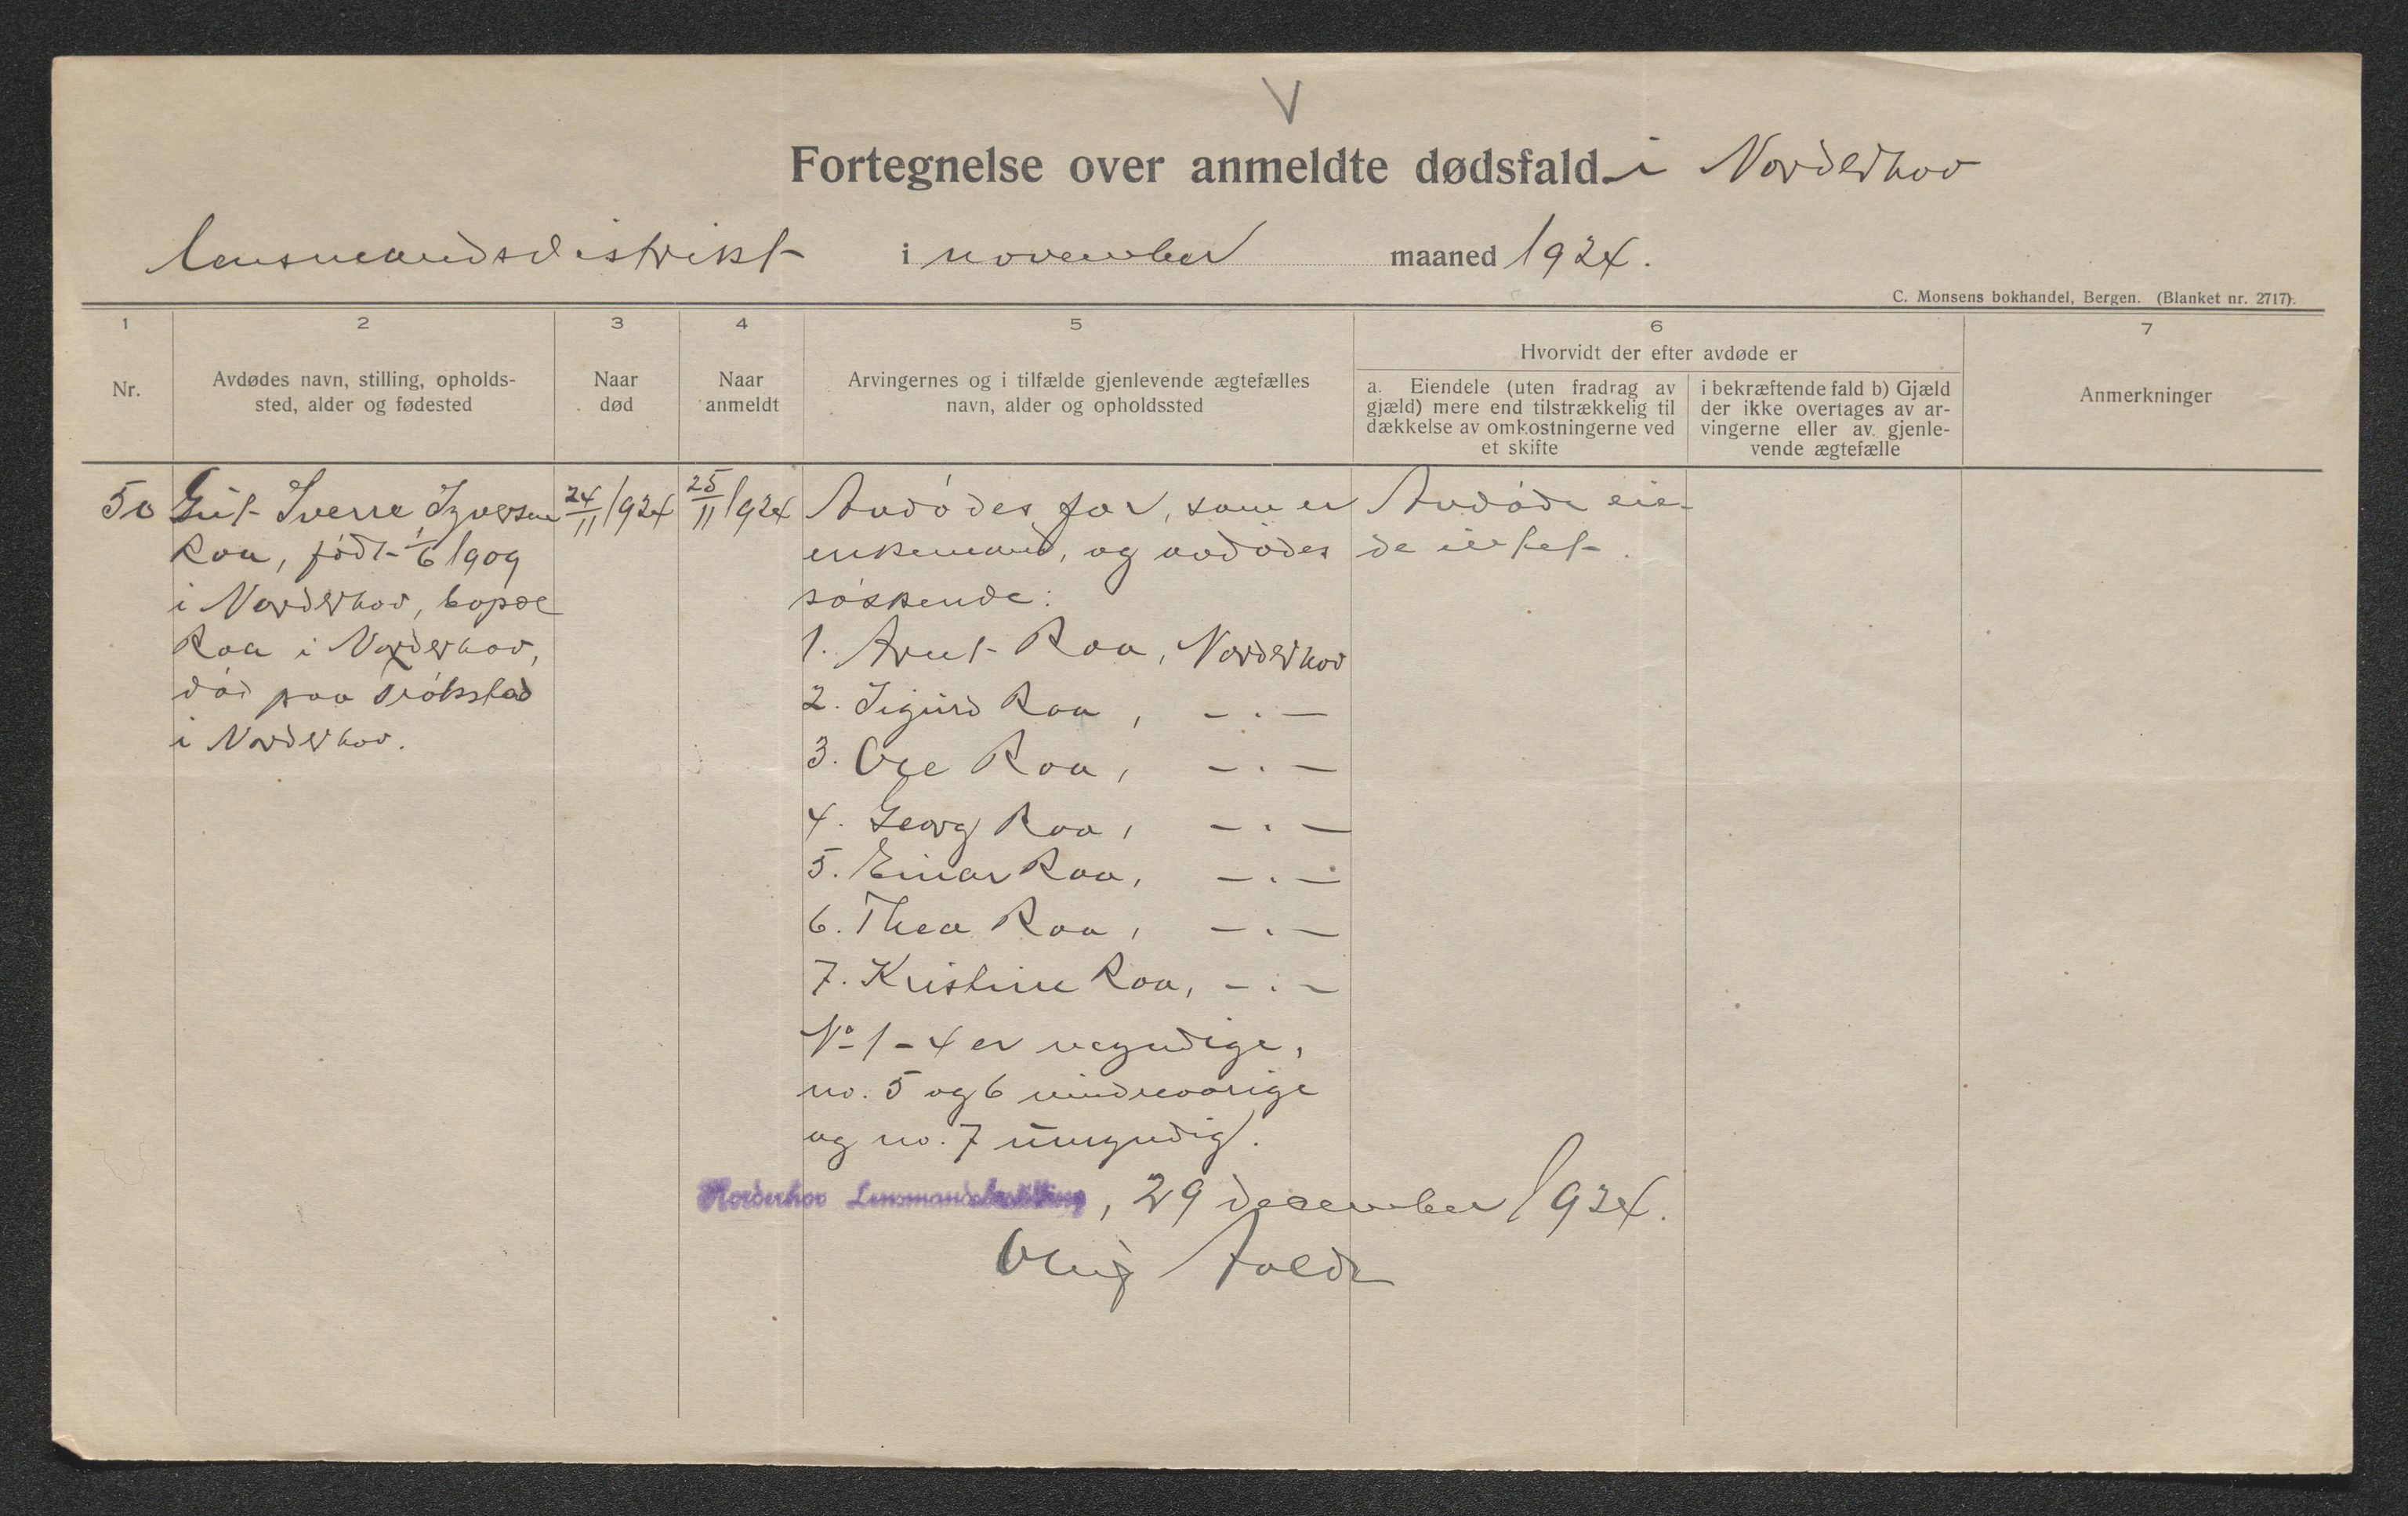 V
Fortegnelse over anmeldte dødsfald i Norderhov
lensmandsdistrikt i november maaned 1924.
C. Monsens bokhandel, Bergen. (Blanket nr. 2717).
1 2 3 4 5 6 7
Nr.
Avdødes navn, stilling, opholds-
sted, alder og fødested
Naar
død
Naar
anmeldt
Arvingernes og i tilfælde gjenlevende ægtefælles
navn, alder og opholdssted
Hvorvidt der efter avdøde er
a. Eiendele (uten fradrag av
gjæld) mere end tilstrækkelig til
dækkelse av omkostningerne ved
et skifte
i bekræftende fald b) Gjæld
der ikke overtages av ar-
vingerne eller av gjenle-
vende ægtefælle
Anmerkninger
50
Gut Sverre Iversen
Roa, født 1/6 1909
i Norderhov, bopæl
Roa i Norderhov,
død paa Trøkstad
i Norderhov.
24/11 1924
25/11 1924
Avdødes far, som er
enkemand, og avdødes
søskende:
1. Arnt Roa, Norderhov
2. Sigurd Roa, - . -
3. Ole Roa, - . -
4. Georg Roa, - . -
5. Einar Roa, - . -
6. Thea Roa, - . -
7. Kristine Roa, - . -
No 1 - 4 er myndige,
no. 5 og 6 mindreaarige
og no. 7 umyndig.
Avdøde eie-
de intet.
Norderhov Lensmandsbestilling, 29 december 1924.